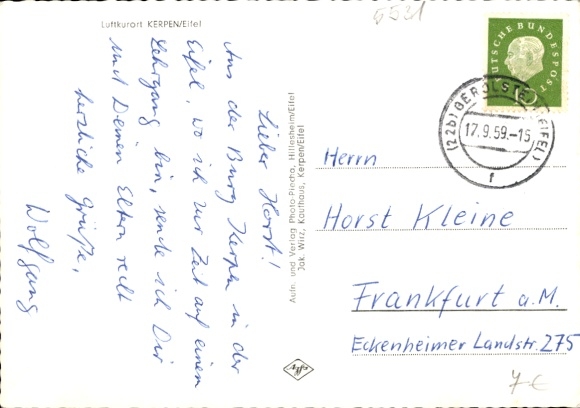 Luftkurort KERPEN/Eifel
Lieber Horst!
Aus der Burg Kerpen in der
Eifel, wo ich zur Zeit auf einem
Lehrgang bin, sende ich Dir
und Deinen Eltern recht
herzliche Grüße,
Wolfgang
Aufn. und Verlag Photo-Piecha, Hillesheim/Eifel
Jak. Wirz, Kaufhaus, Kerpen/Eifel
6531
DEUTSCHE BUNDESPOST
(22b) GEROLSTEIN (EIFEL)
17.9.59.-15
f
Herrn
Horst Kleine
Frankfurt a.M.
Eckenheimer Landstr. 275
7€